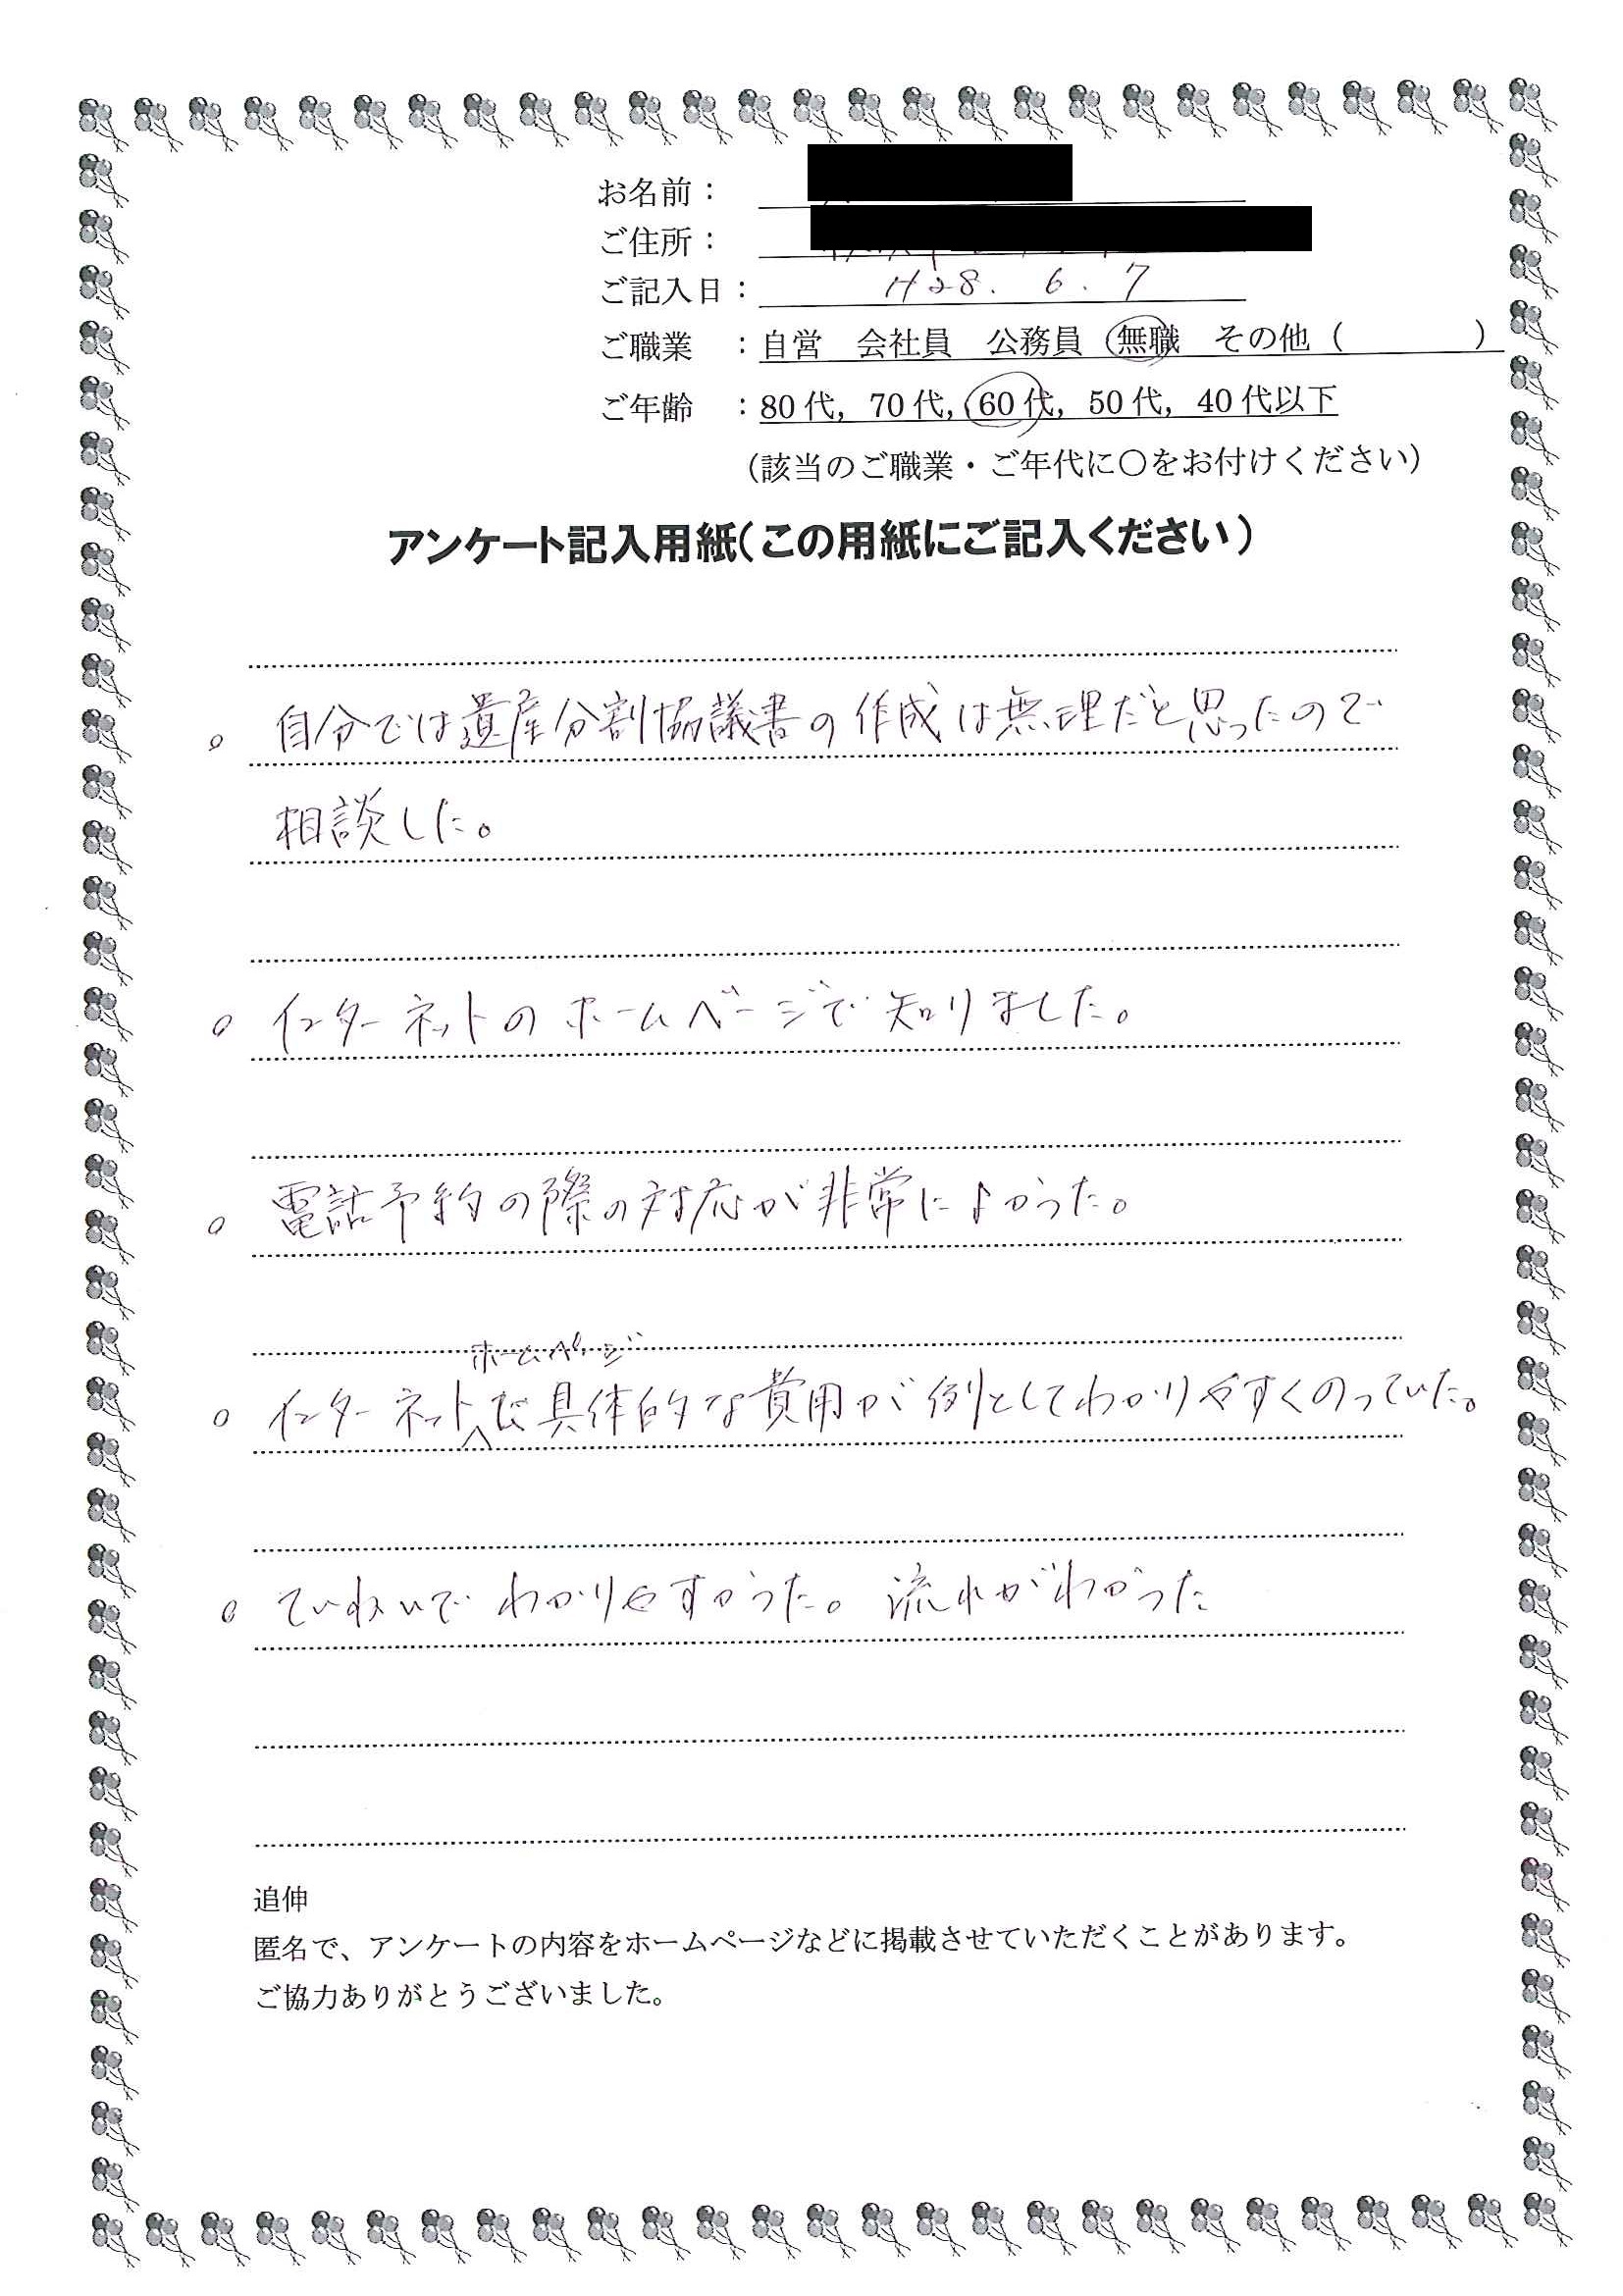 お名前：
ご住所：
ご記入日： H28. 6. 7
ご職業 ：自営 会社員 公務員 無職 その他（ ）
ご年齢 ：80代，70代，60代，50代，40代以下
（該当のご職業・ご年代に○をお付けください）
アンケート記入用紙（この用紙にご記入ください）
。自分では遺産分割協議書の作成は無理だと思ったので
相談した。
。インターネットのホームページで知りました。
。電話予約の際の対応が非常によかった。
ホームページ
。インターネットで具体的な費用が例としてわかりやすくのっていた。
。ていねいでわかりやすかった。流れがわかった
追伸
匿名で、アンケートの内容をホームページなどに掲載させていただくことがあります。
ご協力ありがとうございました。